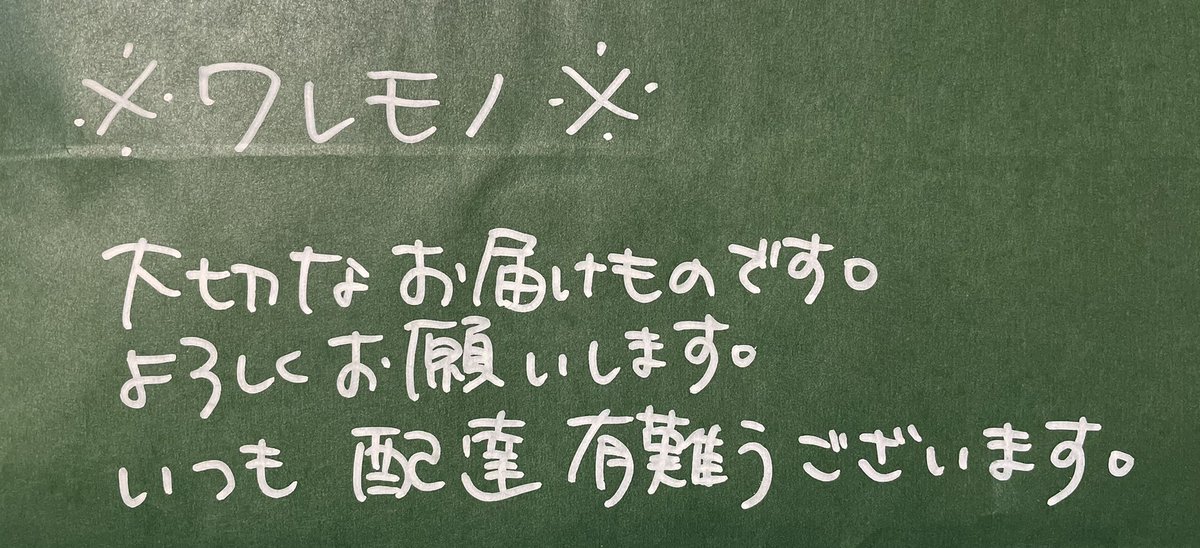 ※ワレモノ※
大切なお届けものです。
よろしくお願いします。
いつも 配達 有難うございます。